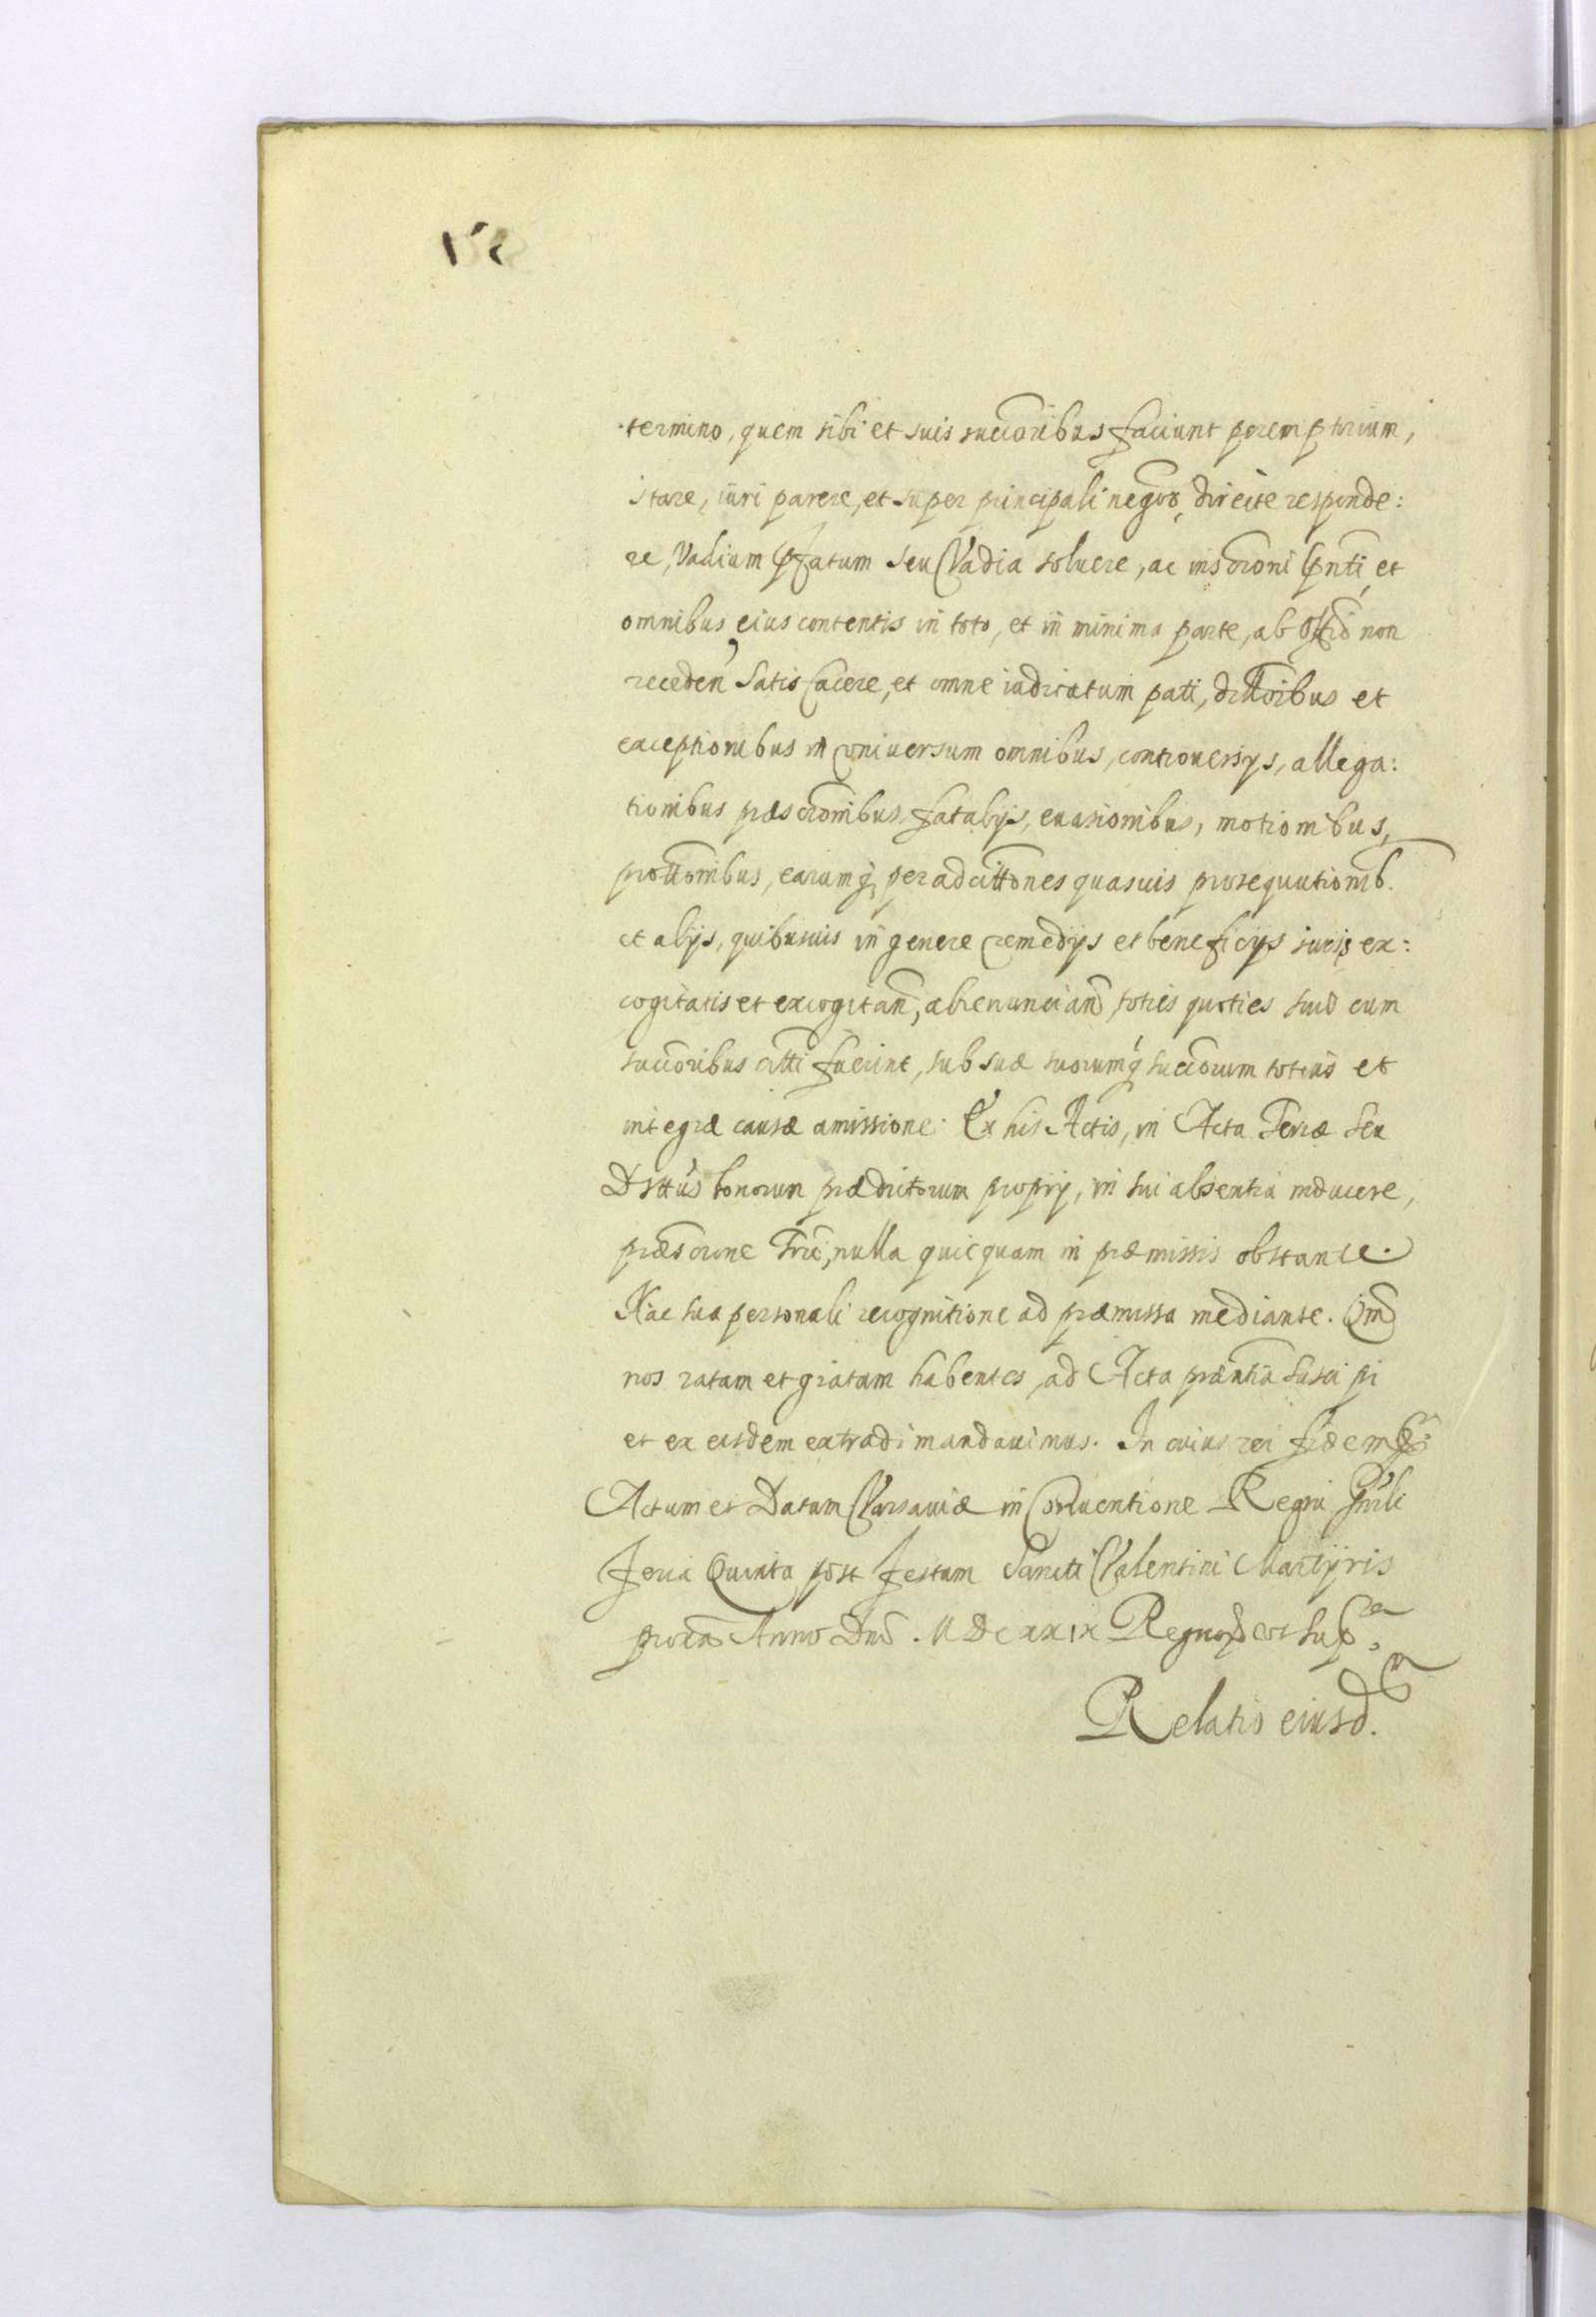 termino, quem sibi et suis succoribus faciunt peremptorium,
stare, iuri parere, et super principali negoo, directe responde:
re, Vadium pfatum seu Vadia soluere, ac inscroni pnti, et
omnibus eius contentis in toto, et in minima parte, ab Offio non
receden satisfacere, et omne iudicatum pati, dillaoibus et
exceptionibus in vniuersum omnibus, controuersys, allega:
tionibus præscronibus, fatalys, euasionibus, motionibus,
prottonibus, earumq, per adcittones quasuis prosequutionib.
et alijs, quibusuis in genere remedijs et beneficys iuris ex:
cogitatis et excogitan, abrenuncian, toties quoties suis cum
succoribus citti fuerint, sub suæ suorumq succorum totius et
integræ causæ amissione. Ex his Actis, in Acta Terræ seu
Dsttus bonorum prædictorum proprij, in sui absentia inducere,
præscrone Trii, nulla quicquam in præmissis obstante.
Hac sua personali recognitione ad præmissa mediante. Qm
nos ratam et gratam habentes, ad Acta prænttia suscipi
et ex eisdem extradi mandauimus. In cuius rei fidem &
Actum et Datum Varsauiæ in Conuentione Regni Gnrli
Feria Quinta post Festum Sancti Valentini Martyris
proxa Anno Dni MDCXXIX Regnor vt sup
Relatio eiusd.